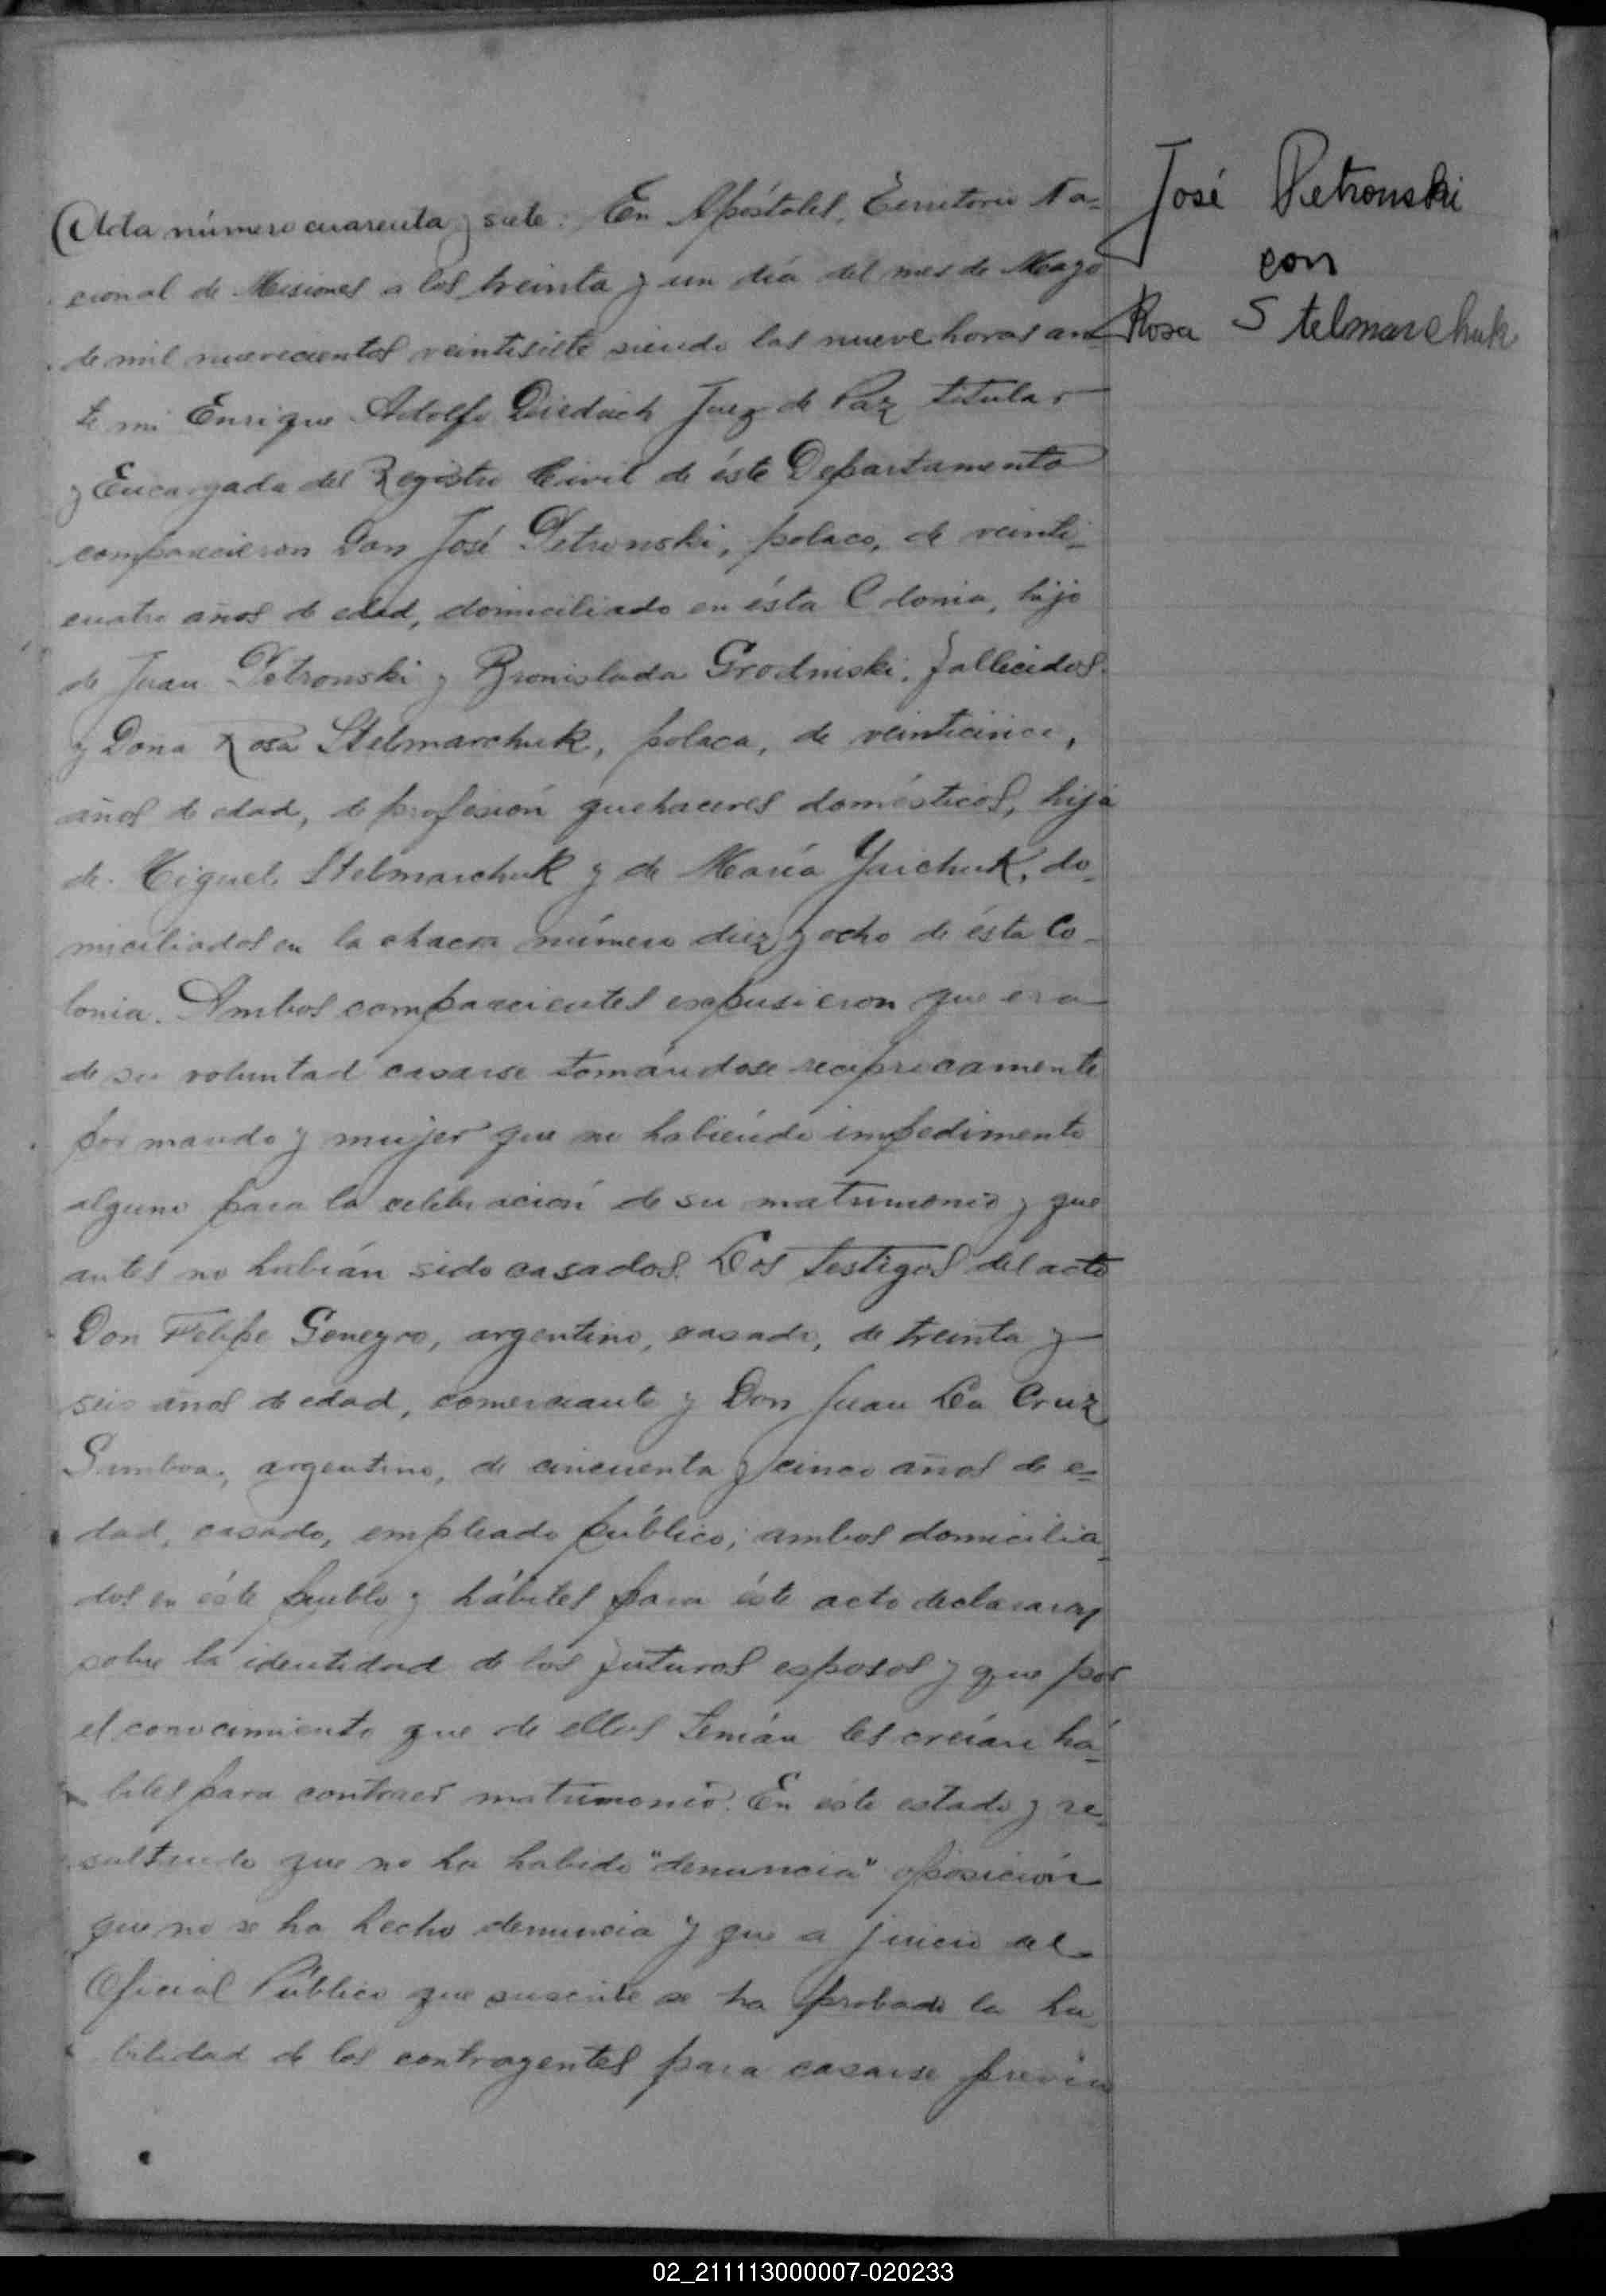 José Petronski
con
Rosa Stelmarchuk
Acta número cuarenta y siete: En Apóstoles, Territorio Na=
cional de Misiones a los treinta y un día del mes de Mayo
de mil novecientos veintisiete siendo las nueve horas an=
te mi Enrique Adolfo Diedrich Juez de Paz titular
y Encargado del Registro Civil de éste Departamento
comparecieron Don José Petronski, polaco, de veinti-
cuatro años de edad, domiciliado en ésta Colonia, hijo
de Juan Petronski y Bronislada Grodniski, fallecidos.
y Doña Rosa Stelmarchuk, polaca, de veinticinco,
años de edad, de profesión quehaceres domésticos, hija
de Miguel Stelmarchuk y de María Yaichuk, do-
miciliados en la chacra número diez y ocho de ésta Co-
lonia. Ambos comparecientes expusieron que era
de su voluntad casarse tomándose reciprocamente
por marido y mujer que no habiendo impedimento
alguno para la celebración de su matrimonio y que
antes no habían sido casados. Los testigos del acto
Don Felipe Genegro, argentino, casado, de treinta y
seis años de edad, comerciante y Don Juan La Cruz
argentino, de cincuenta y cinco años de e=
dad, casado, empleado público; ambos domicilia-
dos en éste pueblo y hábiles para éste acto declararon
sobre la identidad de los futuros esposos y que por
el conocimiento que de ellos tenían les creían há-
biles para contraer matrimonio. En éste estado y re-
sultando que no ha habido "denuncia" oposición
que no se ha hecho denuncia y que a juicio del
Oficial Público que suscribe se ha probado la ha-
bilidad de los contrayentes para casarse previa
02_211113000007-020233